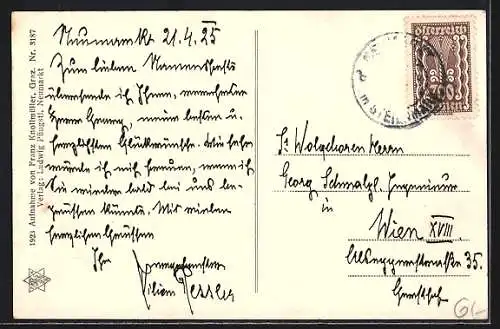 1923 Aufnahme von Franz Knollmüller, Graz. Nr. 3187
Verlag: Ludwig Pöngratl, Neumarkt
Neumarkt 21.4.25
Zum lieben Namensfeste
übersende ich Ihnen, verehrter
Herr Georg, meine besten u.
herzlichsten Glückwünsche. Wie sehr
würde ich mich freuen, wenn ich
Sie wieder bald bei uns be-
grüßen könnte. Mit vielen
herzlichen Grüßen
Ihr
Kilian
österreich
Sr Wolgeboren Herrn
Georg Schmalzl, Ingenieur
in
Wien XVIII
Alsеggerstraße 35.
Gersthof
60/-